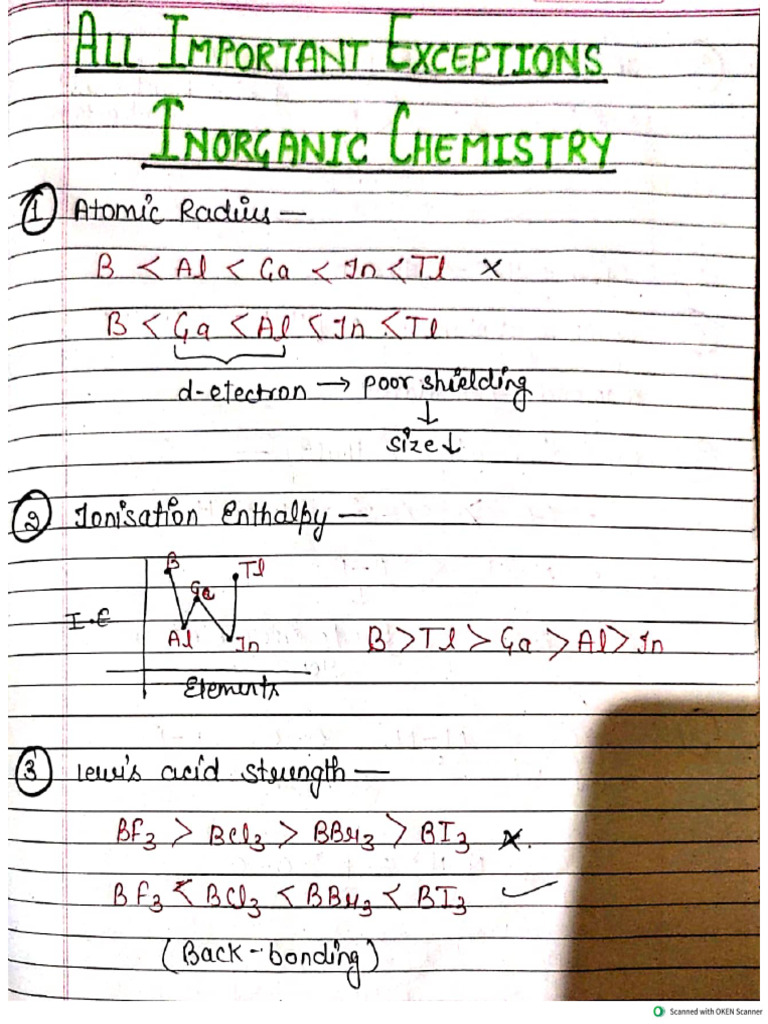 ALL IMPORTANT EXCEPTIONS
INORGANIC CHEMISTRY
① Atomic Radius —
B < Al < Ga < In < Tl ×
B < Ga < Al < In < Tl
d-electron → poor shielding
↓
size↓
② Ionisation Enthalpy —
B
Tl
Ga
I.E
Al
In
B > Tl > Ga > Al > In
Elements
③ Lewis acid strength —
BF3 > BCl3 > BBr3 > BI3 ×.
BF3 < BCl3 < BBr3 < BI3 ✓
(Back-bonding)
Scanned with OKEN Scanner